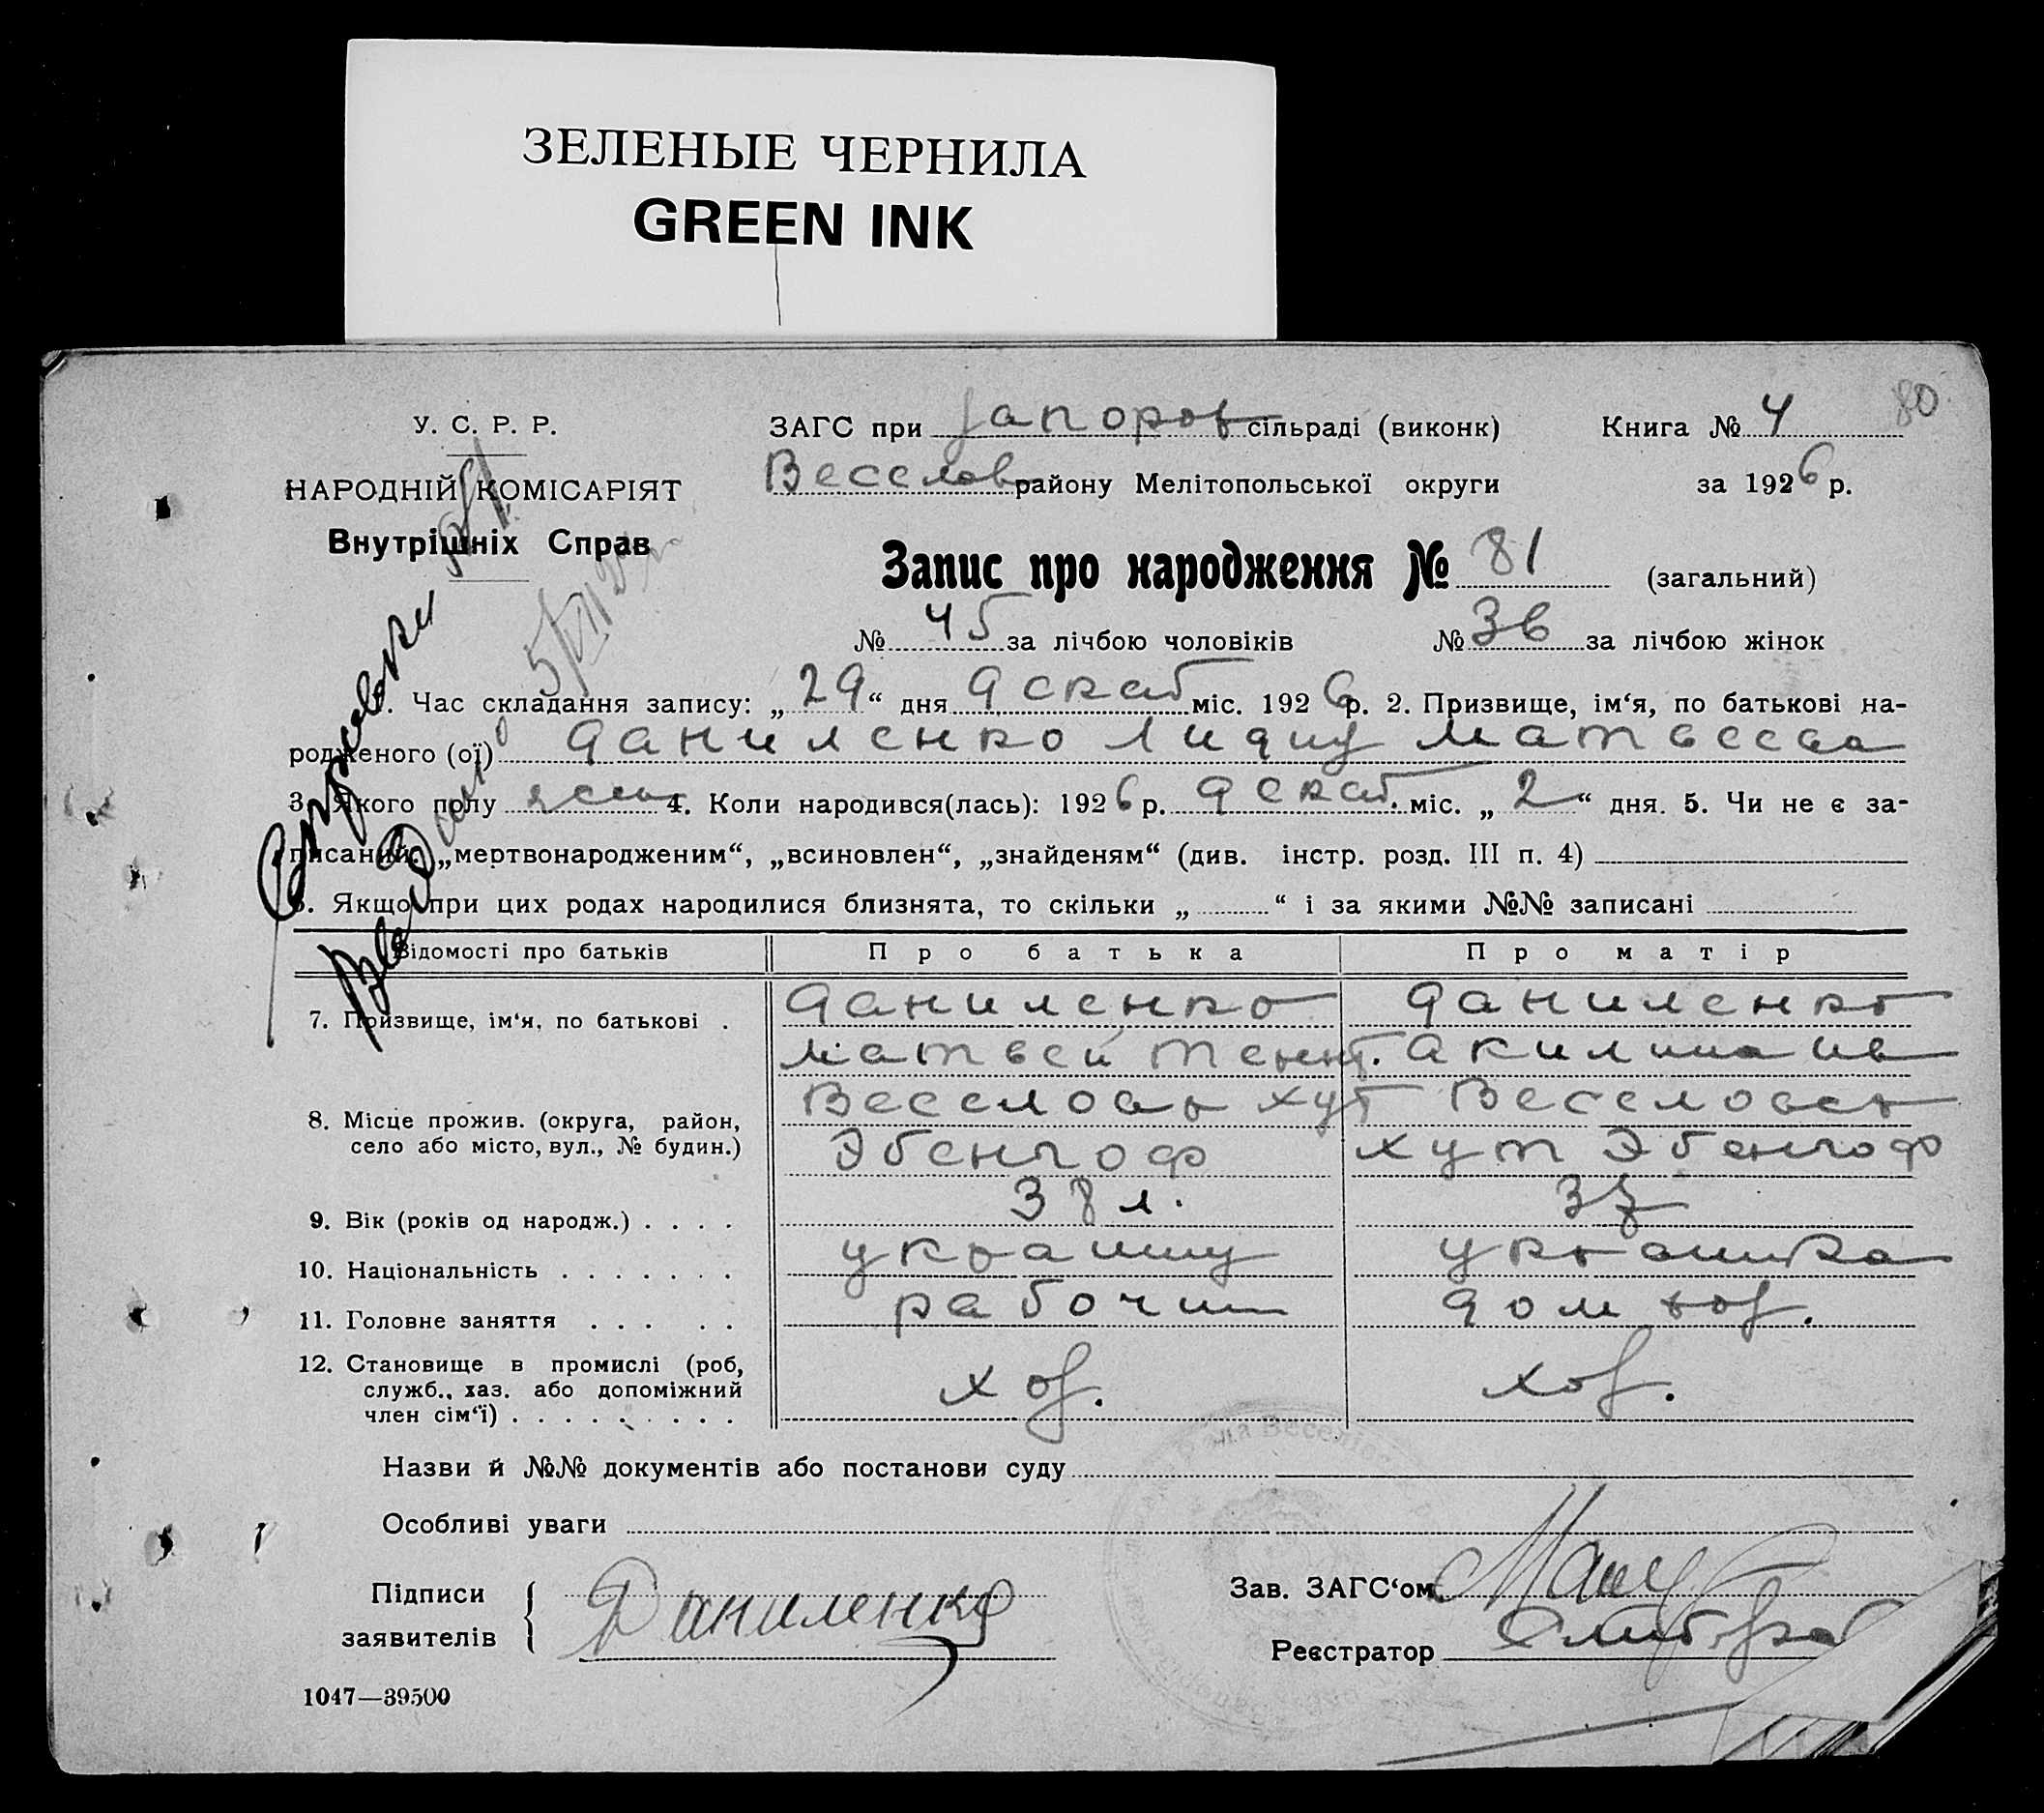 ЗЕЛЕНЫЕ ЧЕРНИЛА
GREEN INK
80
У. С. Р. Р.
НАРОДНІЙ КОМІСАРІЯТ
Внутрішніх Справ
ЗАГС при Запоров сільраді (виконк)
Книга № 4
Веселов району Мелітопольської округи
за 1926 р.
Запис про народження № 81 (загальний)
№ 45 за лічбою чоловіків № 36 за лічбою жінок
Час складання запису: „ 29 “ дня декаб міс. 1926 р. 2. Призвище, ім‘я, по батькові на-
родженого (ої) Даниленко Лидия Матвеева
3. Якого полу жен 4. Коли народився(лась): 1926 р. декаб. міс. „ 2 “ дня. 5. Чи не є за-
писаний: „мертвонародженим“, „всиновлен“, „знайденям“ (див. інстр. розд. III п. 4)
6. Якщо при цих родах народилися близнята, то скільки „ “ і за якими №№ записані
Відомості про батьків Про батька Про матір
7. Призвище, ім‘я, по батькові . Даниленко Даниленко
Матвей Акилина Ив
8. Місце прожив. (округа, район, село або місто, вул., № будин.) Веселовск хут Веселовск
Эбенгоф хут Эбенгоф
9. Вік (років од народж.) . . . . 38 л. 37
10. Національність . . . . . . . украинц украинка
11. Головне заняття . . . . . рабочий дом хоз.
12. Становище в промислі (роб, служб., хаз. або допоміжний член сім‘ї) . . . . . . . . . хоз. хоз.
Назви й №№ документів або постанови суду
Особливі уваги
Підписи
заявителів
Даниленко
Зав. ЗАГС‘ом
Реєстратор
1047—39500